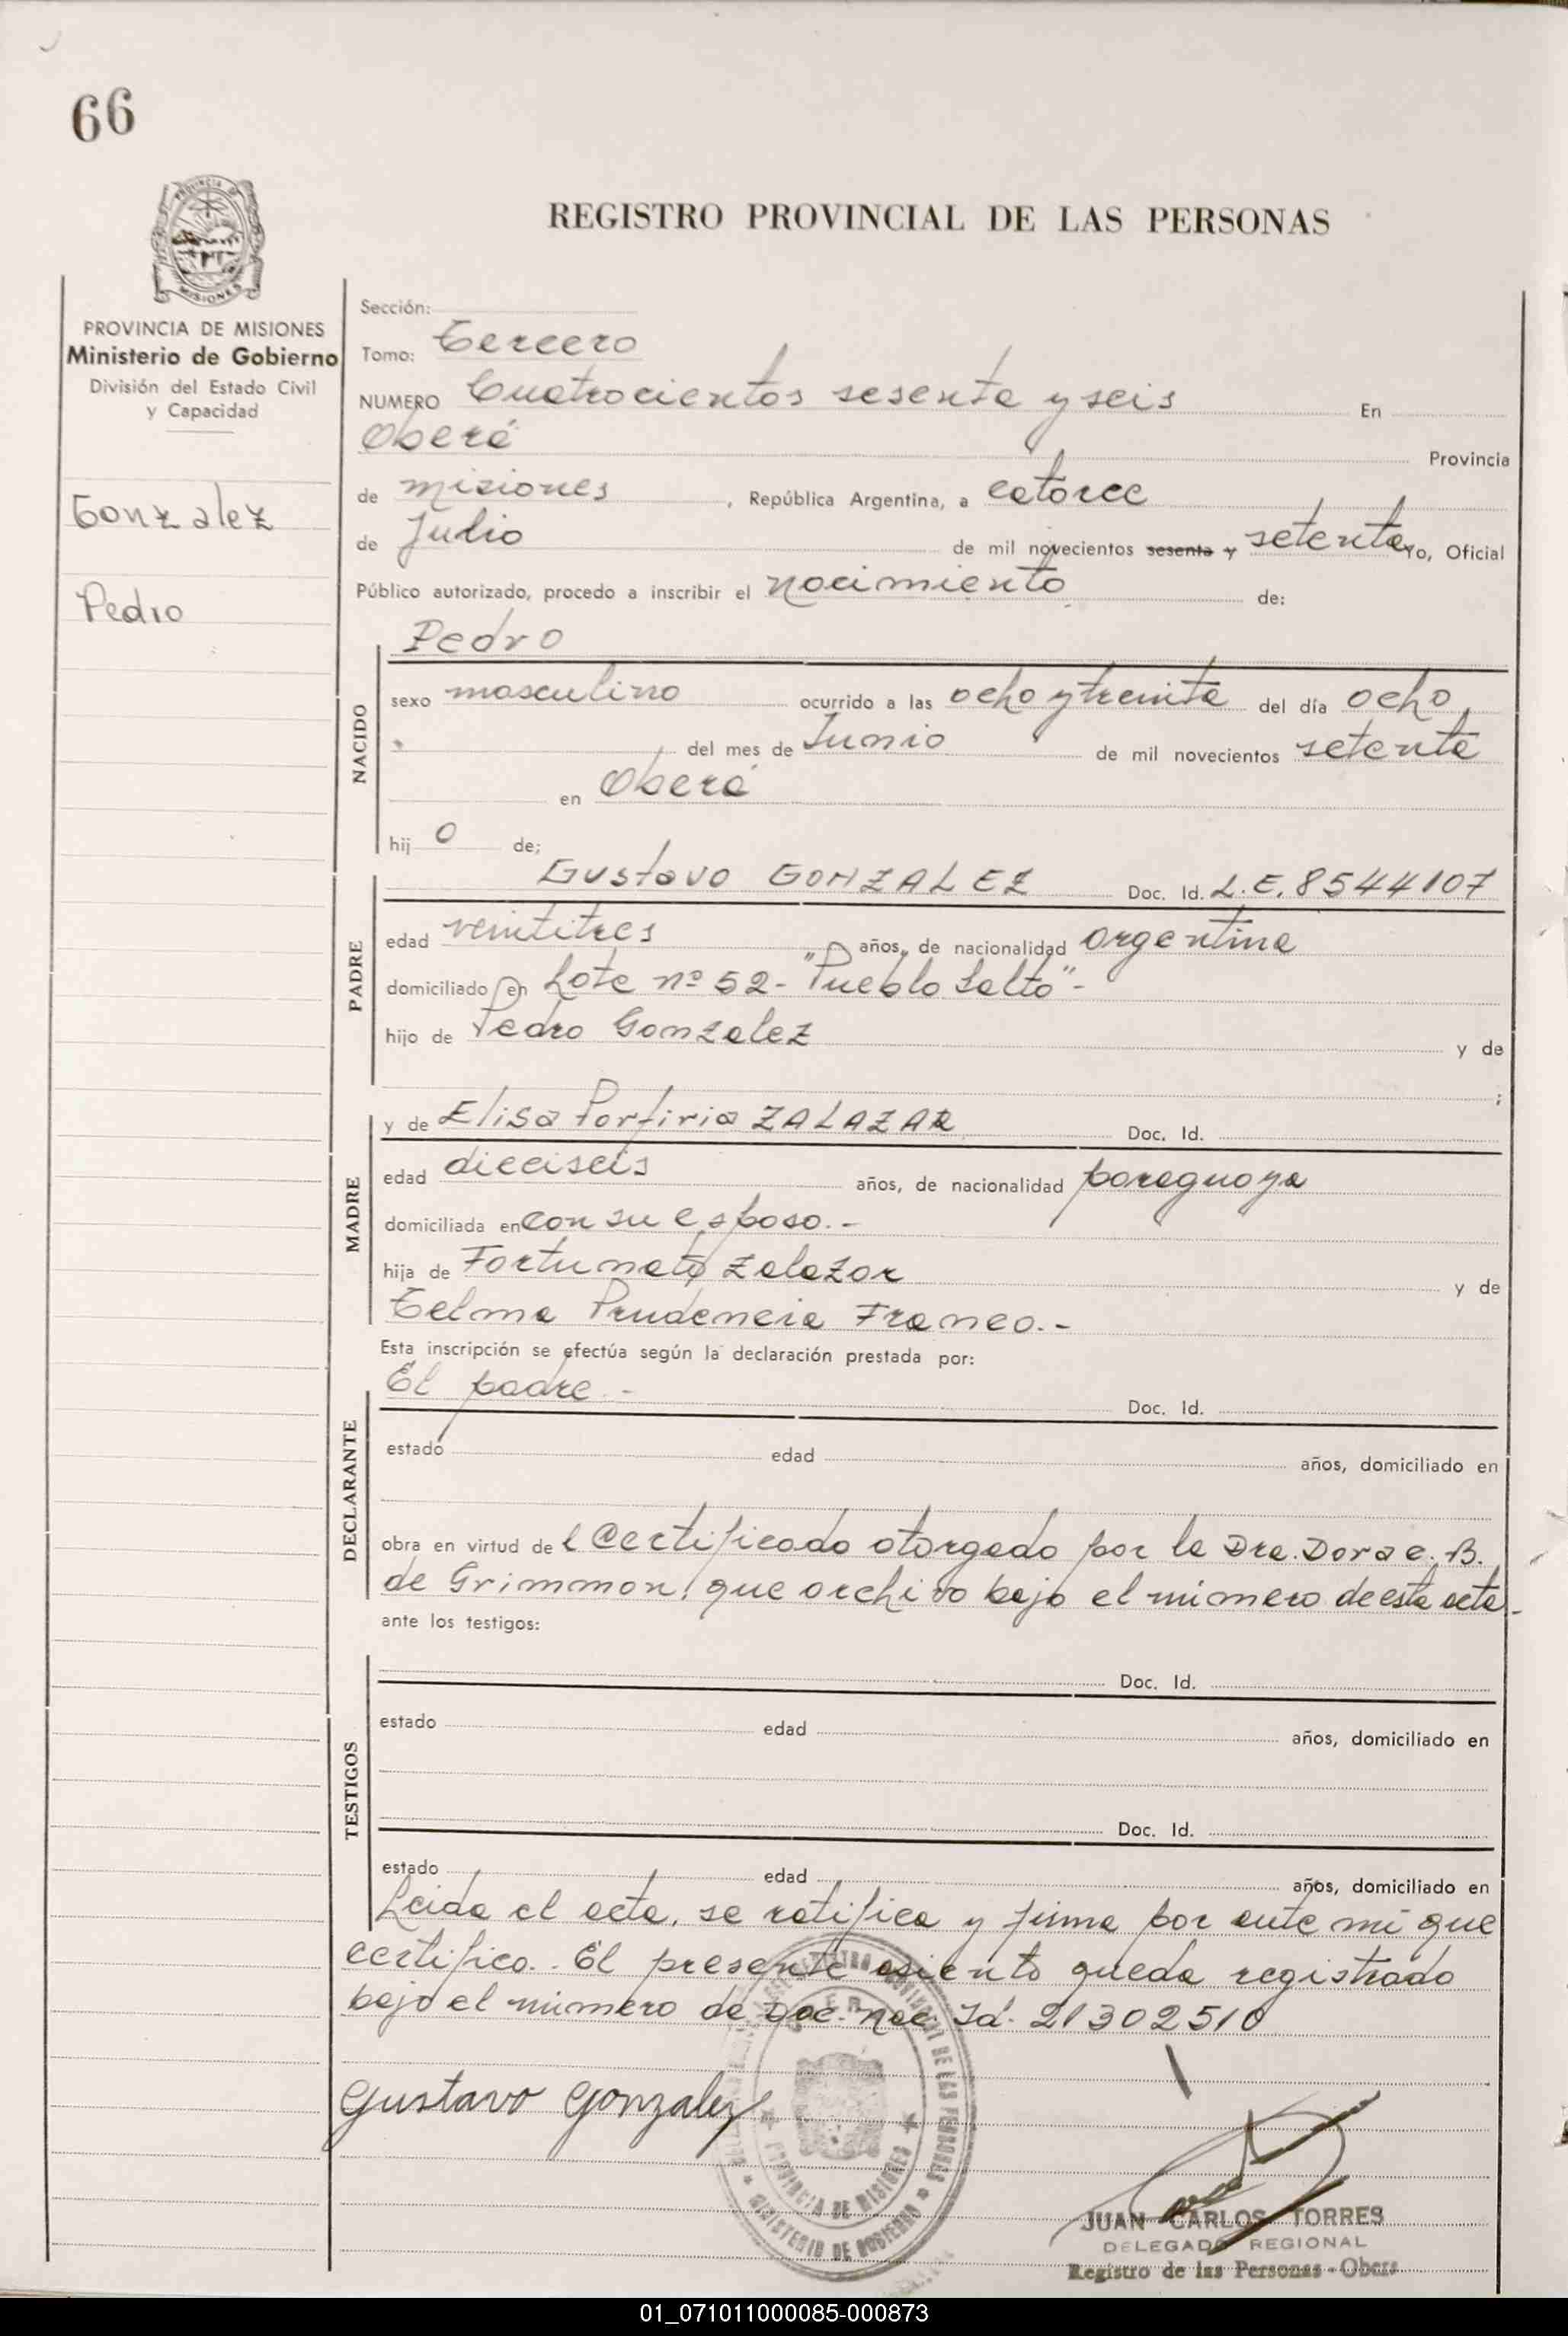 66
PROVINCIA DE MISIONES
REGISTRO PROVINCIAL DE LAS PERSONAS
PROVINCIA DE MISIONES
Ministerio de Gobierno
División del Estado Civil
y Capacidad
Gonzalez
Pedro
Sección:
Tomo: Tercero
NUMERO Cuatrocientos sesenta y seis En
Oberá Provincia
de misiones , República Argentina, a catorce
de Julio de mil novecientos sesenta y setenta Yo, Oficial
Público autorizado, procedo a inscribir el nacimiento de:
Pedro
NACIDO
sexo masculino ocurrido a las ocho y treinta del día ocho
del mes de Junio de mil novecientos setenta
en Oberá
hij o de;
PADRE
Gustavo GONZALEZ Doc. Id. L.E. 8544107
edad veintitres años, de nacionalidad argentina
domiciliado en Lote nº 52- "Pueblo Salto"-
hijo de Pedro Gonzalez y de
;
MADRE
y de Elisa Porfiria ZALAZAR Doc. Id.
edad dieciseis años, de nacionalidad paraguaya
domiciliada en con su esposo.-
hija de Fortunato Zalazar y de
Telma Prudencia Franco.-
Esta inscripción se efectúa según la declaración prestada por:
DECLARANTE
El padre.- Doc. Id.
estado edad años, domiciliado en
obra en virtud de l Certificado otorgado por la Dra. Dora C. B.
de Grimmon, que archivo bajo el número de esta acta.-
ante los testigos:
TESTIGOS
Doc. Id.
estado edad años, domiciliado en
Doc. Id.
estado edad años, domiciliado en
Leida el acta, se ratifica y firma por ante mí que
certifico.. El presente asiento queda registrado
bajo el número de Doc. Nac. Id. 21302510
Gustavo Gonzalez
PROVINCIA DE MISIONES
MINISTERIO DE GOBIERNO
JUAN CARLOS TORRES
DELEGADO REGIONAL
Registro de las Personas - Obera
01_071011000085-000873